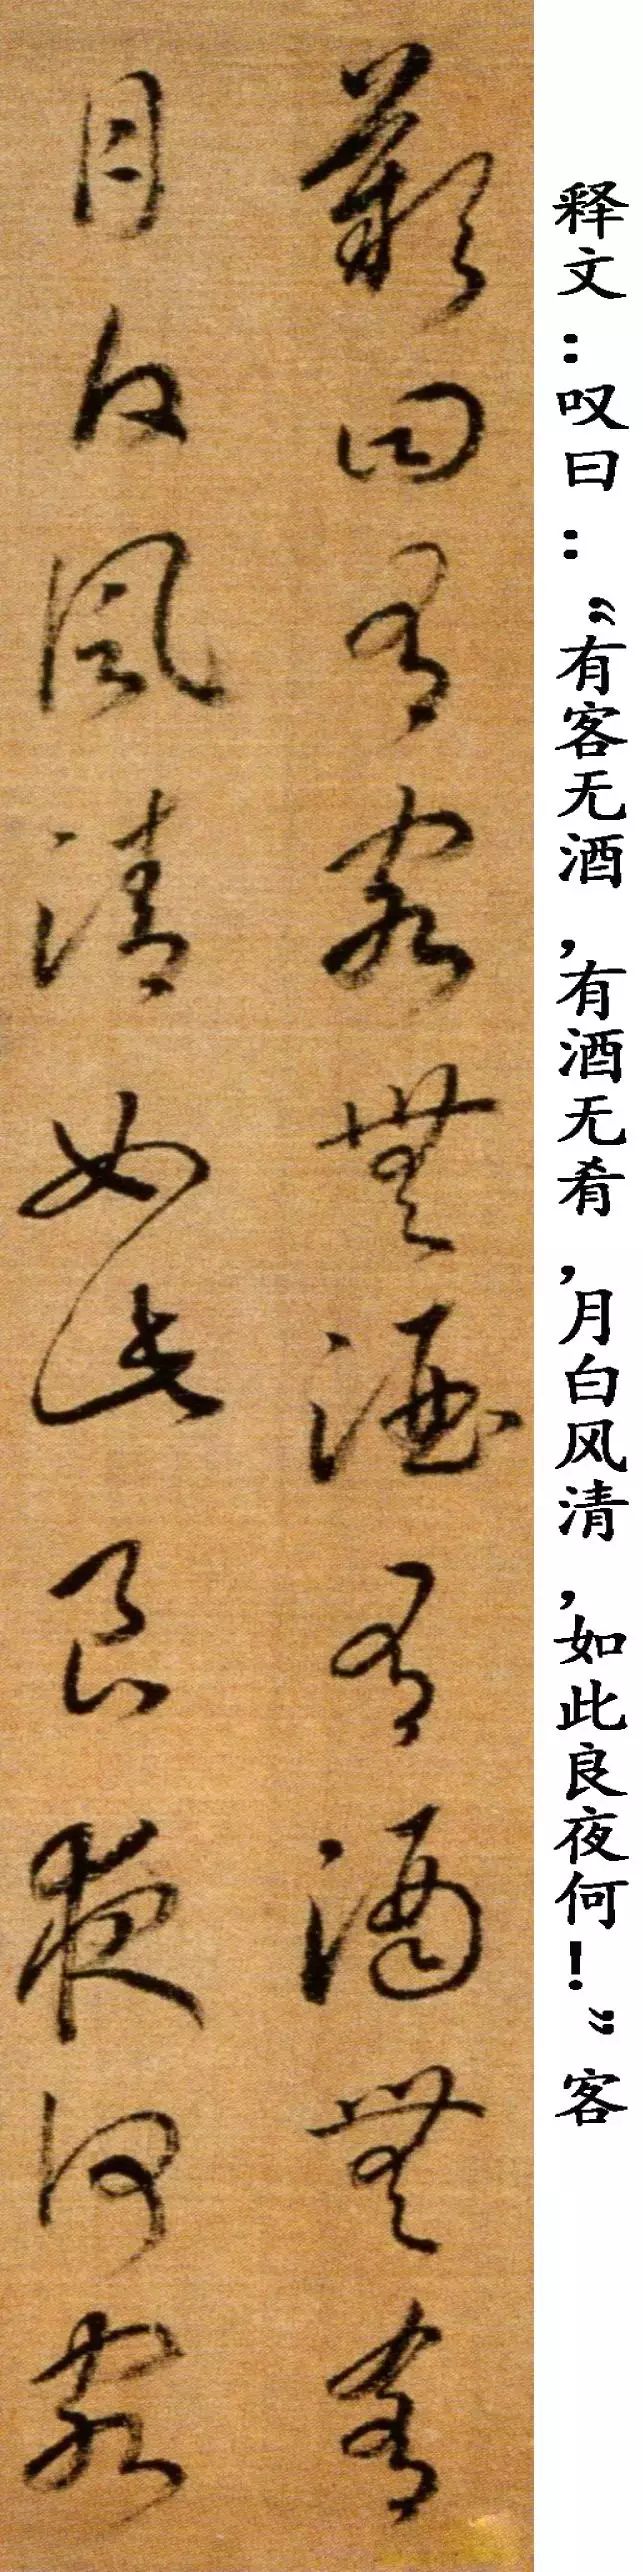 歎曰有客無酒有酒無肴
月白風清如此良夜何客
释文：叹曰：“有客无酒，有酒无肴，月白风清，如此良夜何！”客